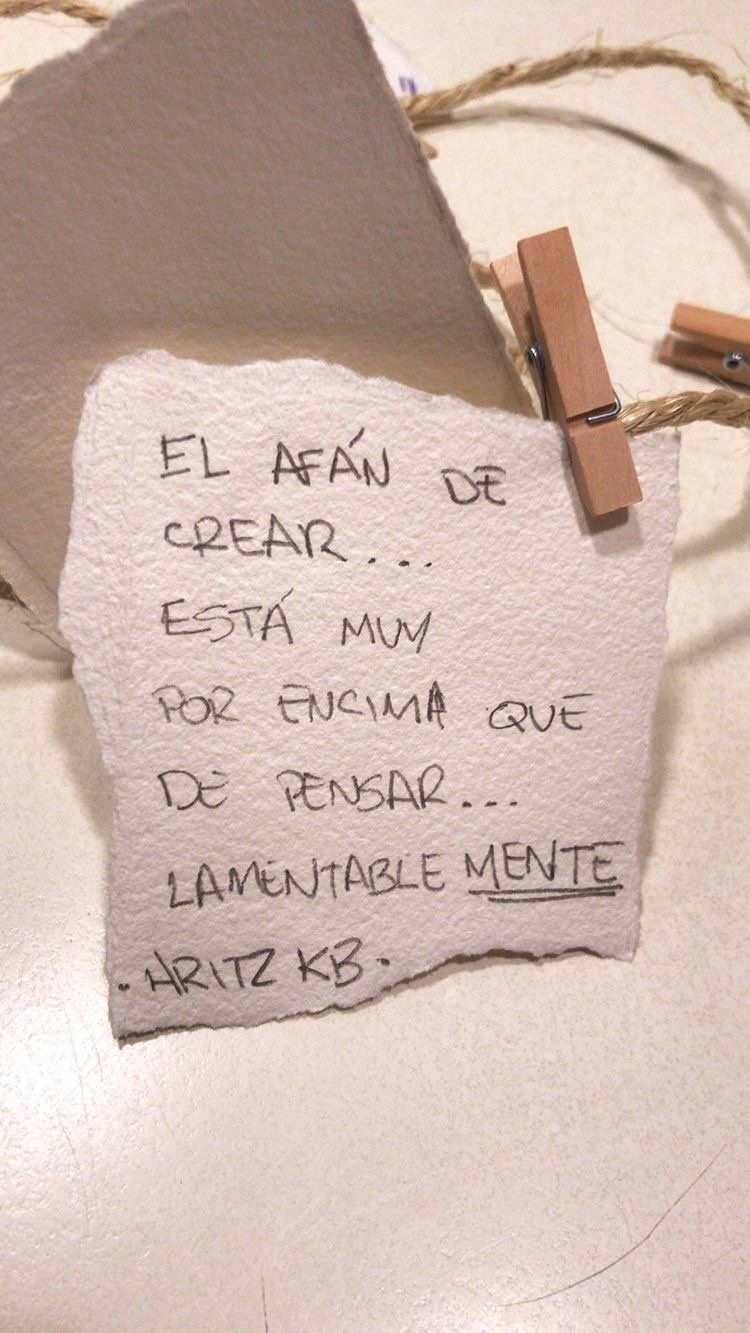 EL AFÁN DE
CREAR...
ESTÁ MUY
POR ENCIMA QUE
DE PENSAR...
LAMENTABLE MENTE
. ARITZ KB.